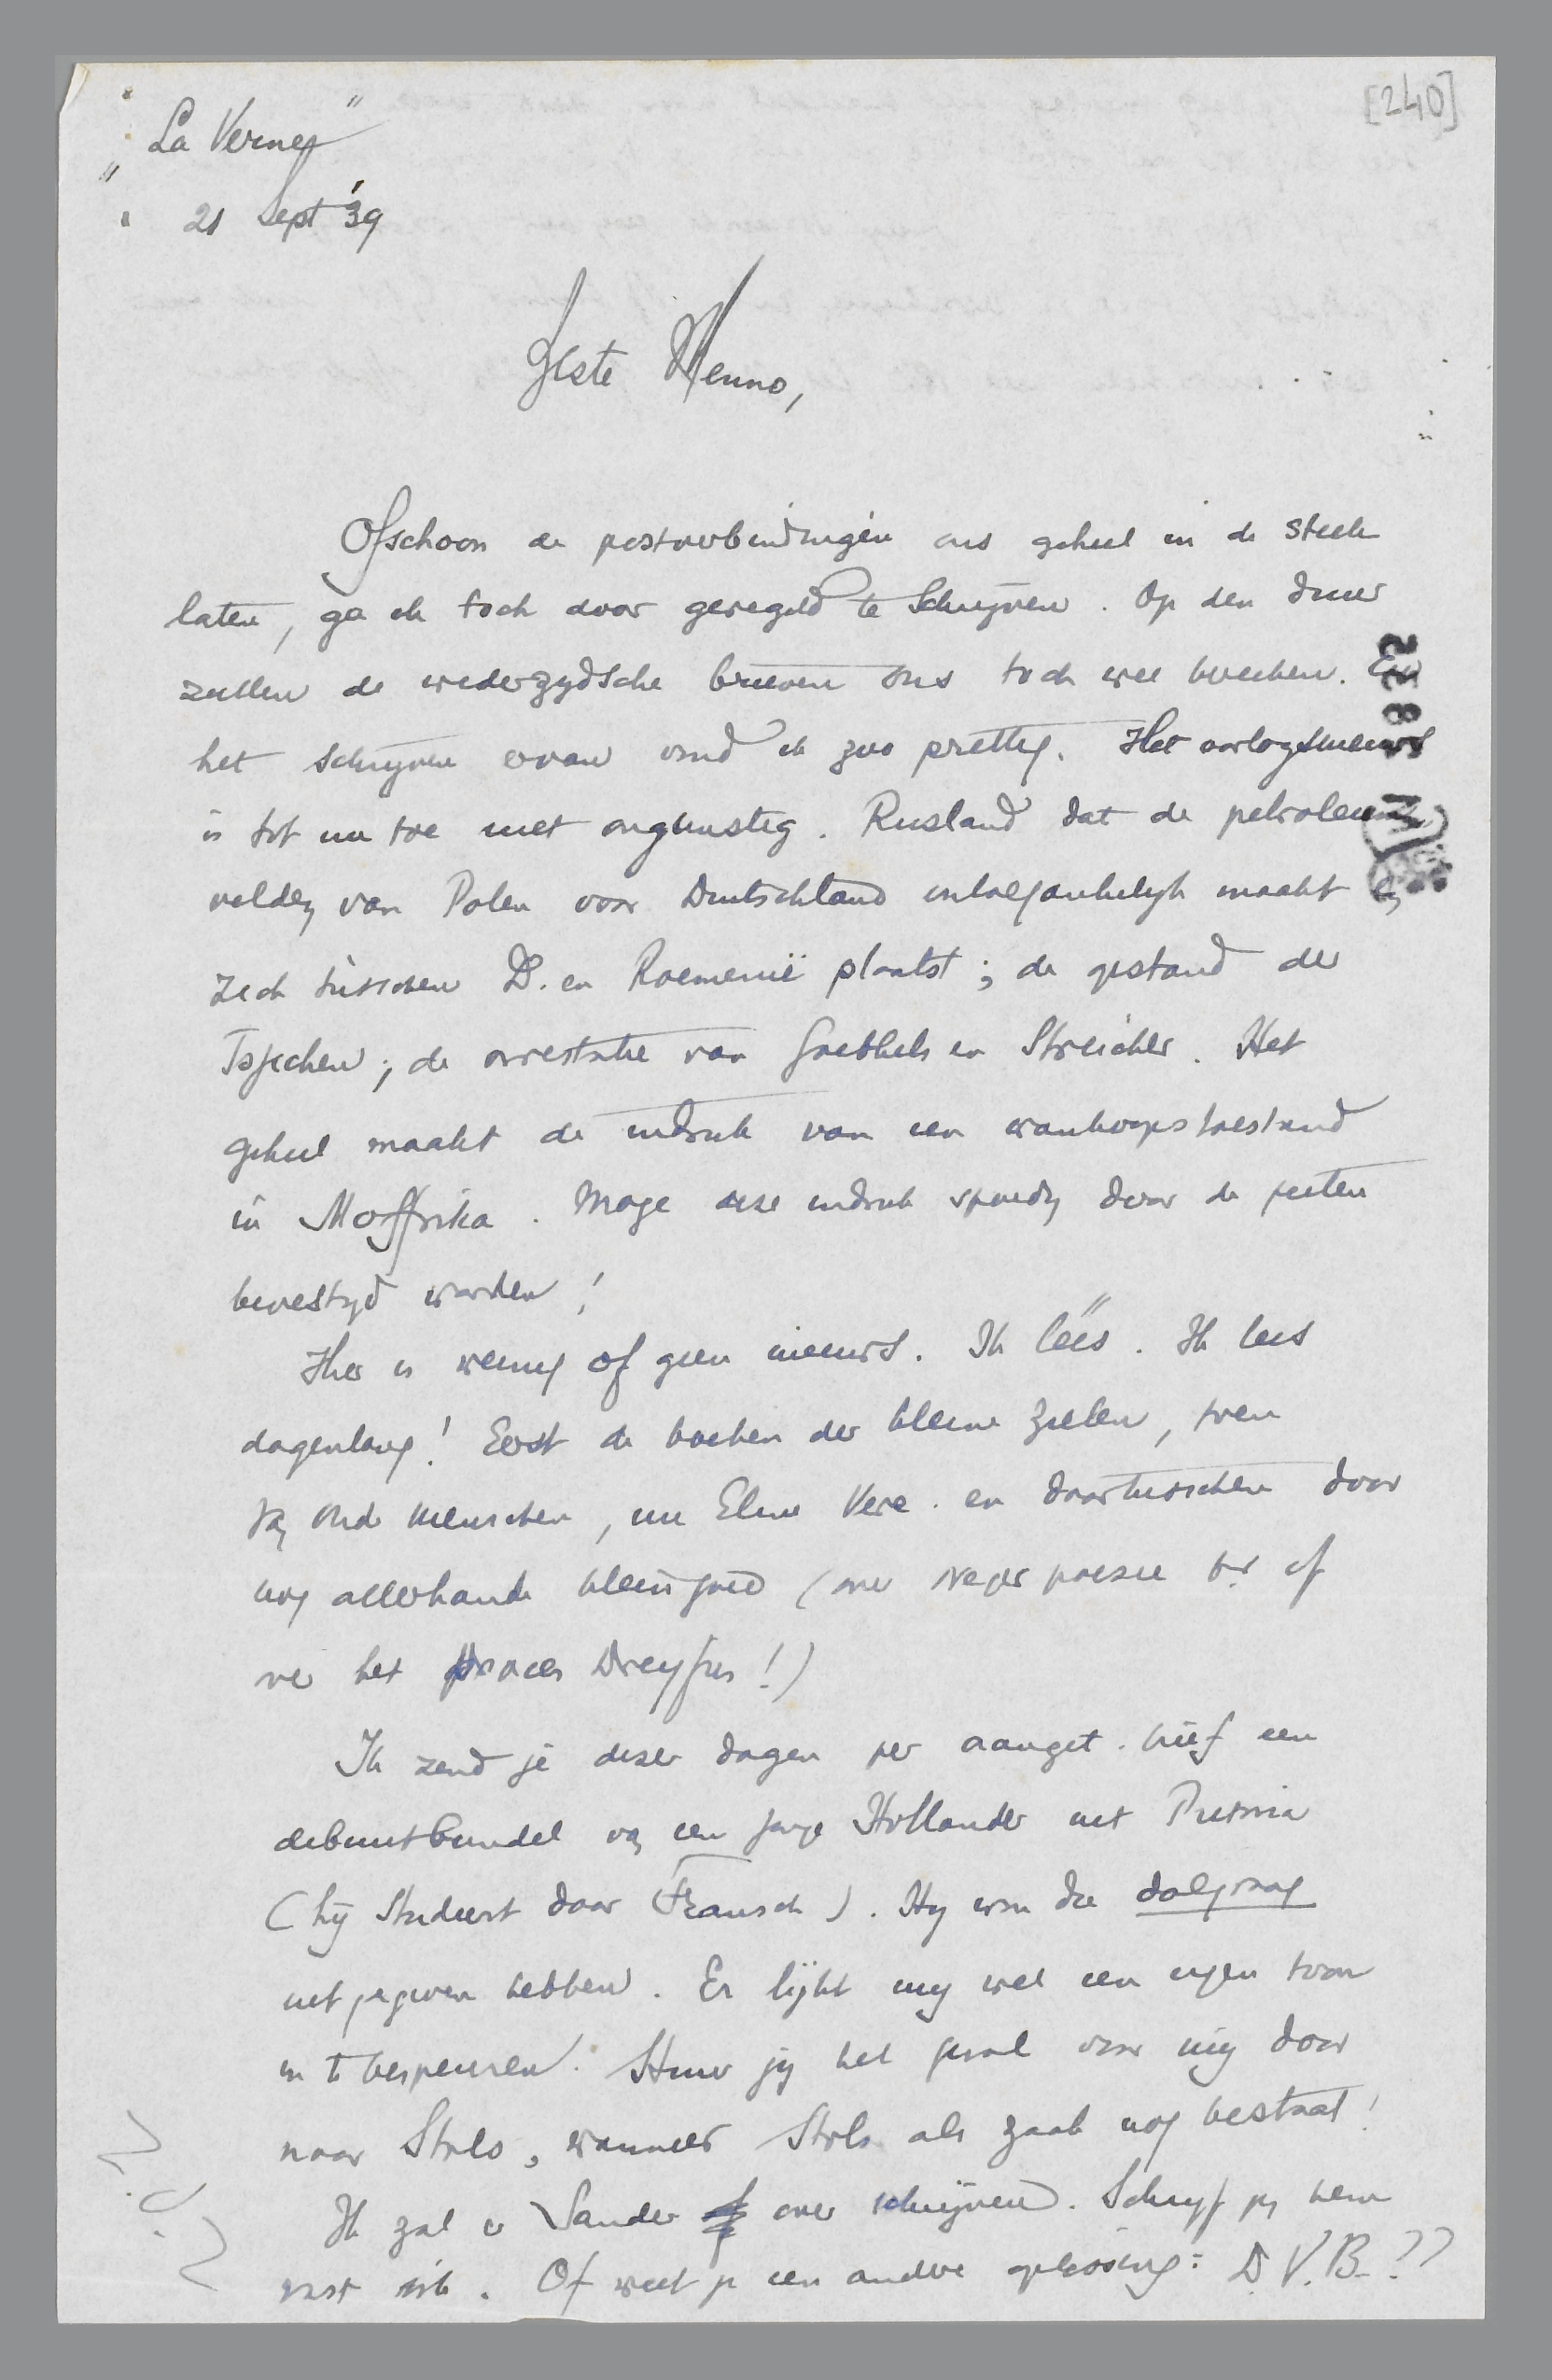 [240]
„La Verney"
21 Sept '39
Bste Menno,
Ofschoon de postverbindingen ons geheel in de steek
laten, ga ik toch door geregeld te schrijven. Op den duur
zullen de wederzijdsche brieven ons toch wel bereiken. En
het schrijven ervan vind ik zoo prettig. Het oorlogsnieuws
is tot nu toe niet ongunstig. Rusland dat de petroleum
velden van Polen voor Duitschland ontoegankelijk maakt en
zich tusschen D. en Roemenië plaatst; de opstand der
Tsjechen; de arrestatie van Goebbels en Streicher. Het
geheel maakt de indruk van een wanhoopstoestand
in Moffrika. Moge deze indruk spoedig door de feiten
bevestigd worden!
Hier is weinig of geen nieuws. Ik léés. Ik lees
dagenlang! Eerst de boeken der kleine zielen, toen
Van oude menschen, nu Eline Vere. en daartusschen door
nog allerhande kleingoed (over negerpoëzie b.v. of
over het proces Dreyfus!)
Ik zend je dezer dagen per aanget. brief een
debuutbundel van een jonge Hollander uit Pretoria
(hij studeert daar Fransch). Hij wou die dolgraag
uitgegeven hebben. Er lijkt mij wel een eigen toon
in te bespeuren. Stuur jij het geval voor mij door
naar Stols, wanneer Stols als zaak nog bestaat!
Ik zal er Sander over schrijven. Schrijf jij hem
vast ook. Of weet je een andere oplossing: D.V.B.??
M 8322